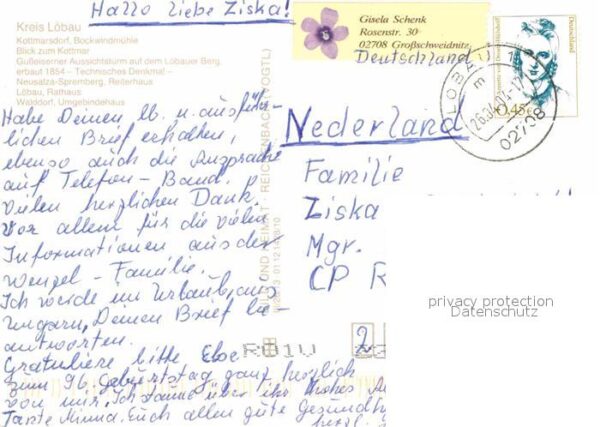 Hallo liebe Ziska!
Kreis Löbau
Kottmarsdorf, Bockwindmühle
Blick zum Kottmar
Gußeiserner Aussichtsturm auf dem Löbauer Berg,
erbaut 1854 – Technisches Denkmal –
Neusalza-Spremberg, Reiterhaus
Löbau, Rathaus
Walddorf, Umgebindehaus
Gisela Schenk
Rosenstr. 30
02708 Großschweidnitz
Deutschland
Deutschland
LÖBAU 1
02708
Habe Deinen lb. u. ausführ-
lichen Brief erhalten,
ebenso auch die Ansprache
auf Telefon-Band.
Vielen herzlichen Dank.
Vor allem für die vielen
Informationen aus der
Wenzel-Familie.
Ich werde im Urlaub, aus
Ungarn, Deinen Brief be-
antworten.
Gratuliere bitte
zum 96. Geburtstag ganz herzlich
von mir. Ich über ihr hohes
Tante Minna. Euch allen gute Gesundh
BILD UND HEIMAT REICHENBACH (VOGTL)
Nederland
Familie
Ziska
Mgr.
CP R
privacy protection
Datenschutz
2